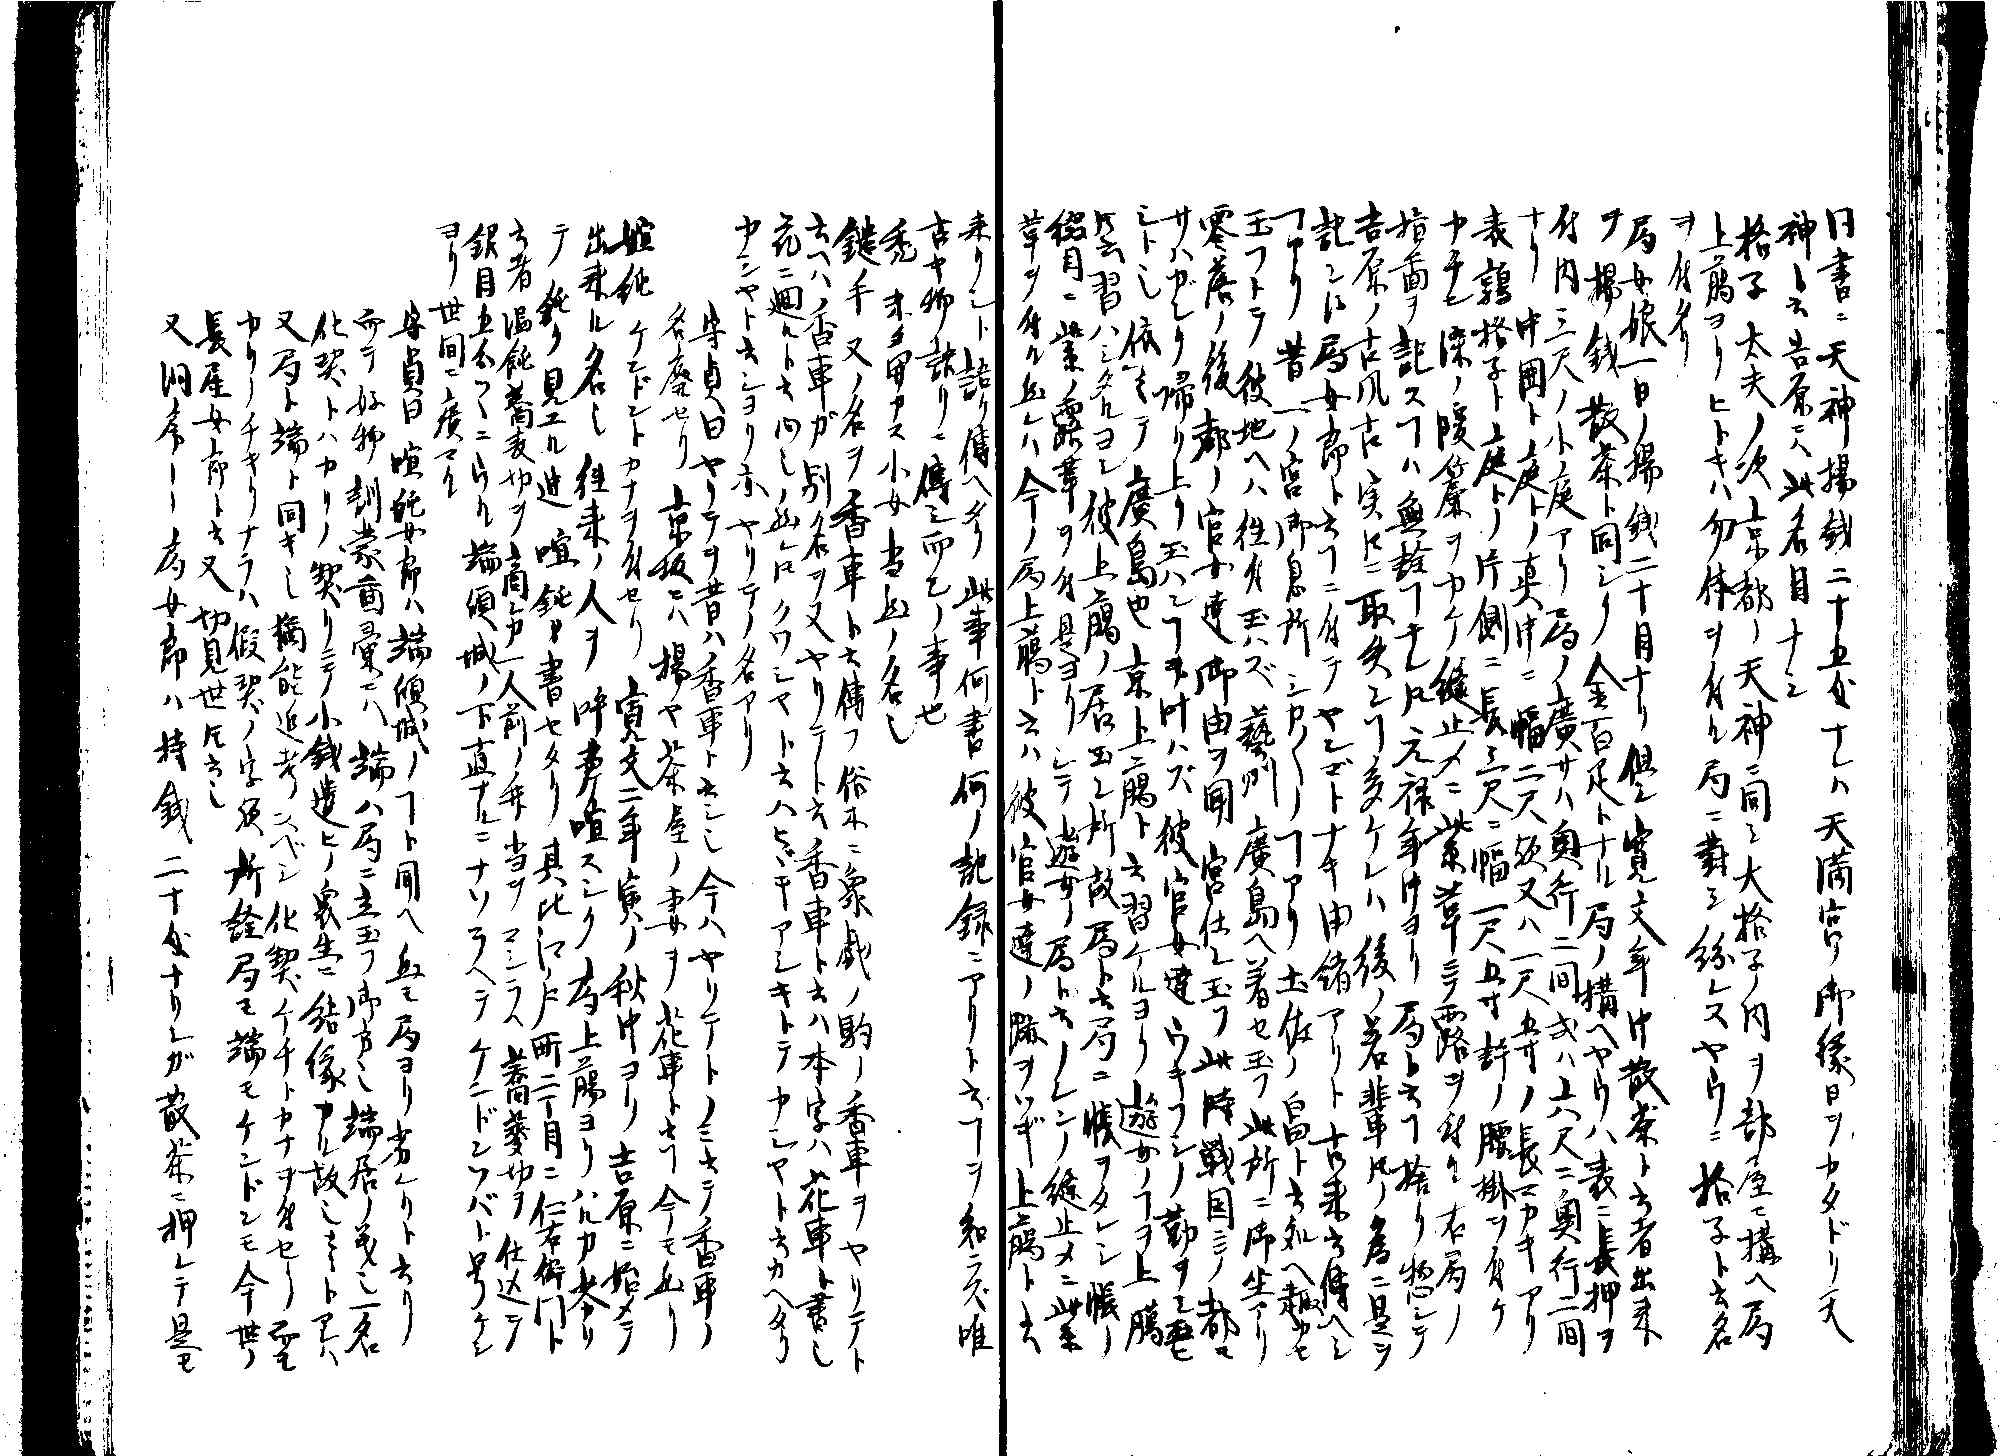 同書ニ天神揚銭二十五匁ナレハ天満宮ノ御縁日ヲカタドリ天
神ト云吉原ニハ此名目ナシ
格子 太夫ノ次京都ノ天神ニ同シ大格子ノ内ヲ部屋ニ構ヘ局
上﨟ヨリヒトキハ勿体ヲ付ル局ニ對シ紛レスヤウニ格子ト云名
ヲ付タリ
局女娘一日ノ揚銭二十目ナリ但シ寛文年中散茶ト云者出来
ヲ揚銭散茶ト同シク金百疋トナル局ノ構ヘヤウハ表ニ長押ヲ
付内ニ三尺ノ小庭アリ局ノ廣サハ奥行二間或ハ六尺ニ奥行二間
ナリ中圍ト庭トノ真中ニ幅二尺或又ハ一尺五寸ノ長ニカキアリ
表鶉格子ト庭トノ片側ニ長三尺ニ幅一尺五寸許ノ腰掛ヲ付ケ
カチン染ノ暖簾ヲカケ縫止メニ紫革ニテ露ヲ付ル右局ノ
指面ヲ記スコハ無益コナレ圧元禄年中ヨリ局ト云コ捨リ惣シテ
吉原ノ古風古実圧ニ取失シコ多ケレハ後ノ若輩圧ノ為ニ是ヲ
記シ侍局女郎ト云コニ付テヤンゴトナキ由緒アリト古来云傳ヘシ
コアリ昔一ノ宮御息所シカ〱ノコアリ土佐ノ畠ト云処ヘ趣カセ
玉フトテ彼地ヘハ往付玉ハズ藝州廣島ヘ着セ玉フ此所ニ御坐アリ
零落ノ後都ノ官女達御由ヲ聞宮仕シ玉フ此時戦国ニテ都モ
サハガシク帰リ上リ玉ハンコヲ叶ハズ彼官女達ウキフシノ勤ヲシ玉
シトシ依之テ廣島也京上﨟ト云習ケルヨリ遊女ノコヲ上﨟
圧云習ハシタルヨシ彼上﨟ノ居玉シ所故局ト云局ニ帳ヲタレシ帳ノ
綴目ニ紫ノ露革ヲ付是ヨリシテ遊女ノ局ト云ノレンノ縫止メニ紫
革ヲ付ル也レハ今ノ局上﨟ト云ハ彼官女達ノ跡ヲツギ上﨟ト云
来リシト語リ傳ヘタリ此事何書何ノ記録ニアリト云コヲ知ラズ唯
古ヤ物語リニ傳シ而已ノ事也
禿 オタ毋カス小女當処ノ名也
鑓手 又ノ名ヲ香車ト云傳フ俗ニ象戯ノ駒ノ香車ヲヤリテト
云ヘハノ香車ガ別名ヲ又ヤリテト云香車ト云ハ本字ハ花車ト書シ
花ニ廻ルト云心ノ処圧クワシヤト云ハヒヾキアシキトテカシヤト云カヘタリ
カシヤト云シヨリ亦ヤリテノ名アリ
守貞曰ヤリテヲ昔ハ香車ト云シ今ハヤリテトノミ云テ香車ノ
名廃セリ 京坂ニハ揚ヤ茶屋ノ妻ヲ花車ト云コ今モ然リ
喧鈍 ケンドントカナヲ付セリ 寛文二年寅ノ秋中ヨリ吉原ニ始メテ
出来ル名也往来ノ人ヲ呼声喧スシク局上﨟ヨリハルカ劣リ
テ鈍ク見エル迚喧鈍ト書セタリ其比江戸町二丁目ニ仁右衛門ト
云者温飩蕎麦切ヲ商シカ一人前ノ弁当ヲマシラヘ蕎麥切ヲ仕込テ
銀目五分ツヽニウル端傾城ノ下直ナルニナソラヘテケンドンソバト号ケシ
ヨリ世間ニ廣マル
守貞曰喧鈍女郎ハ端傾城ノコト聞ヘ且ツ局ヨリ劣レリト云リ
而テ好物訓蒙圖彙ニハ端ハ局ニ立玉フ御方也端居ノ義也一名
化契トハカリノ契リニテ小銭遣ヒノ衆生ニ結縁カル故也トアハ
又局ト端ト同キ也摘能追考スベシ化契ケチトカナヲ付セリ而モ
カリノチキリナラハ假契ノ字欤所詮局モ端モケンドンモ今世ノ
長屋女郎ト云又切見世圧云也
又洞房――局女郎ハ持銭二十匁ナリシガ散茶ニ押レテ是モ